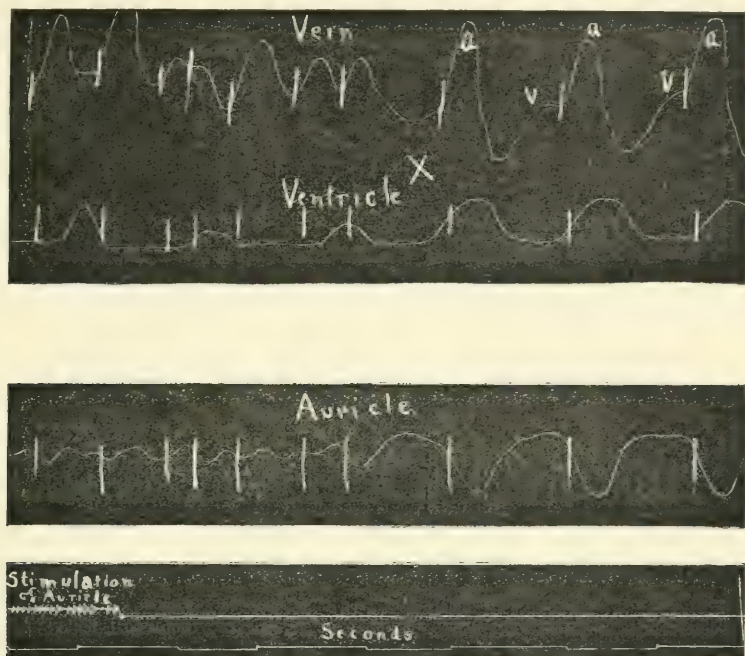 Vein
a a a
v v
X
Ventricle
Auricle
Stimulation
of Auricle
Seconds